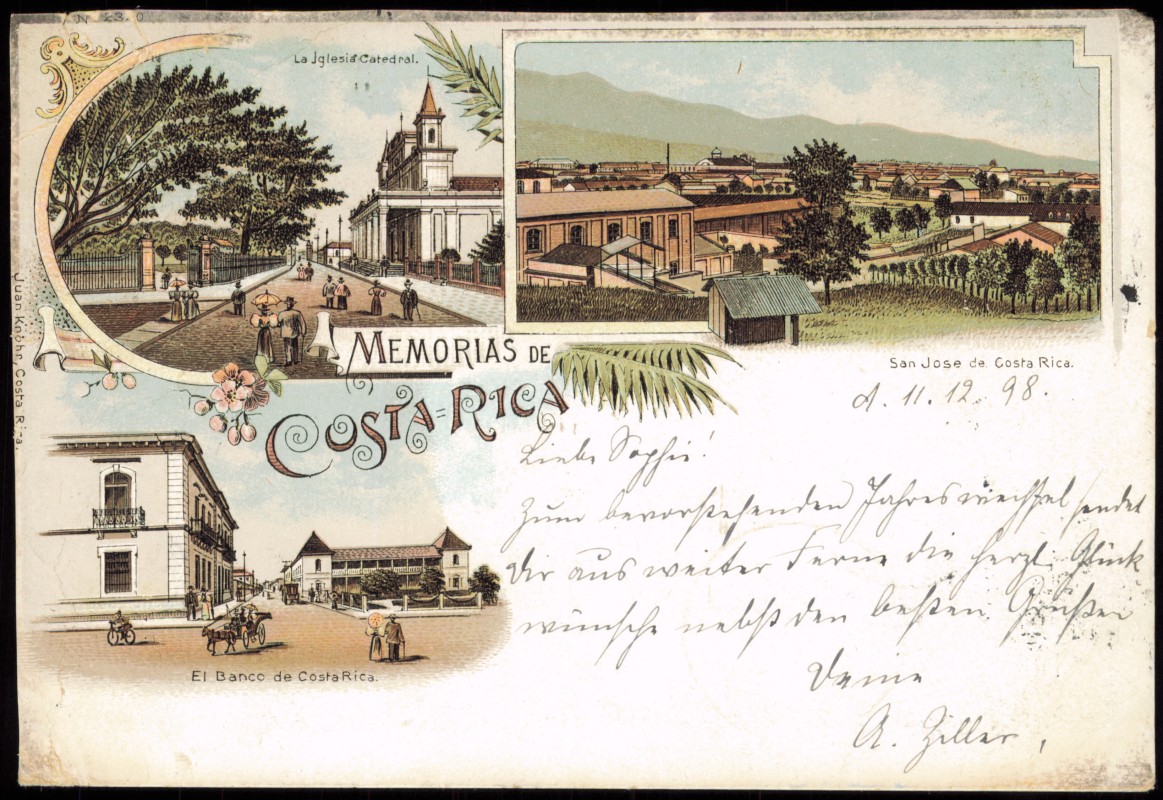 N 23.0
La Iglesia Catedral.
San Jose de Costa Rica.
MEMORIAS DE
COSTA=RICA
Juan Knöhr, Costa Rica.
El Banco de Costa Rica.
A. 11.12.98.
Liebe Sophie!
Zum bevorstehenden Jahreswechsel sendet
Dir aus weiter Ferne die herzl. Glück
wünsche nebst den besten Grüßen
Deine
A. Ziller,